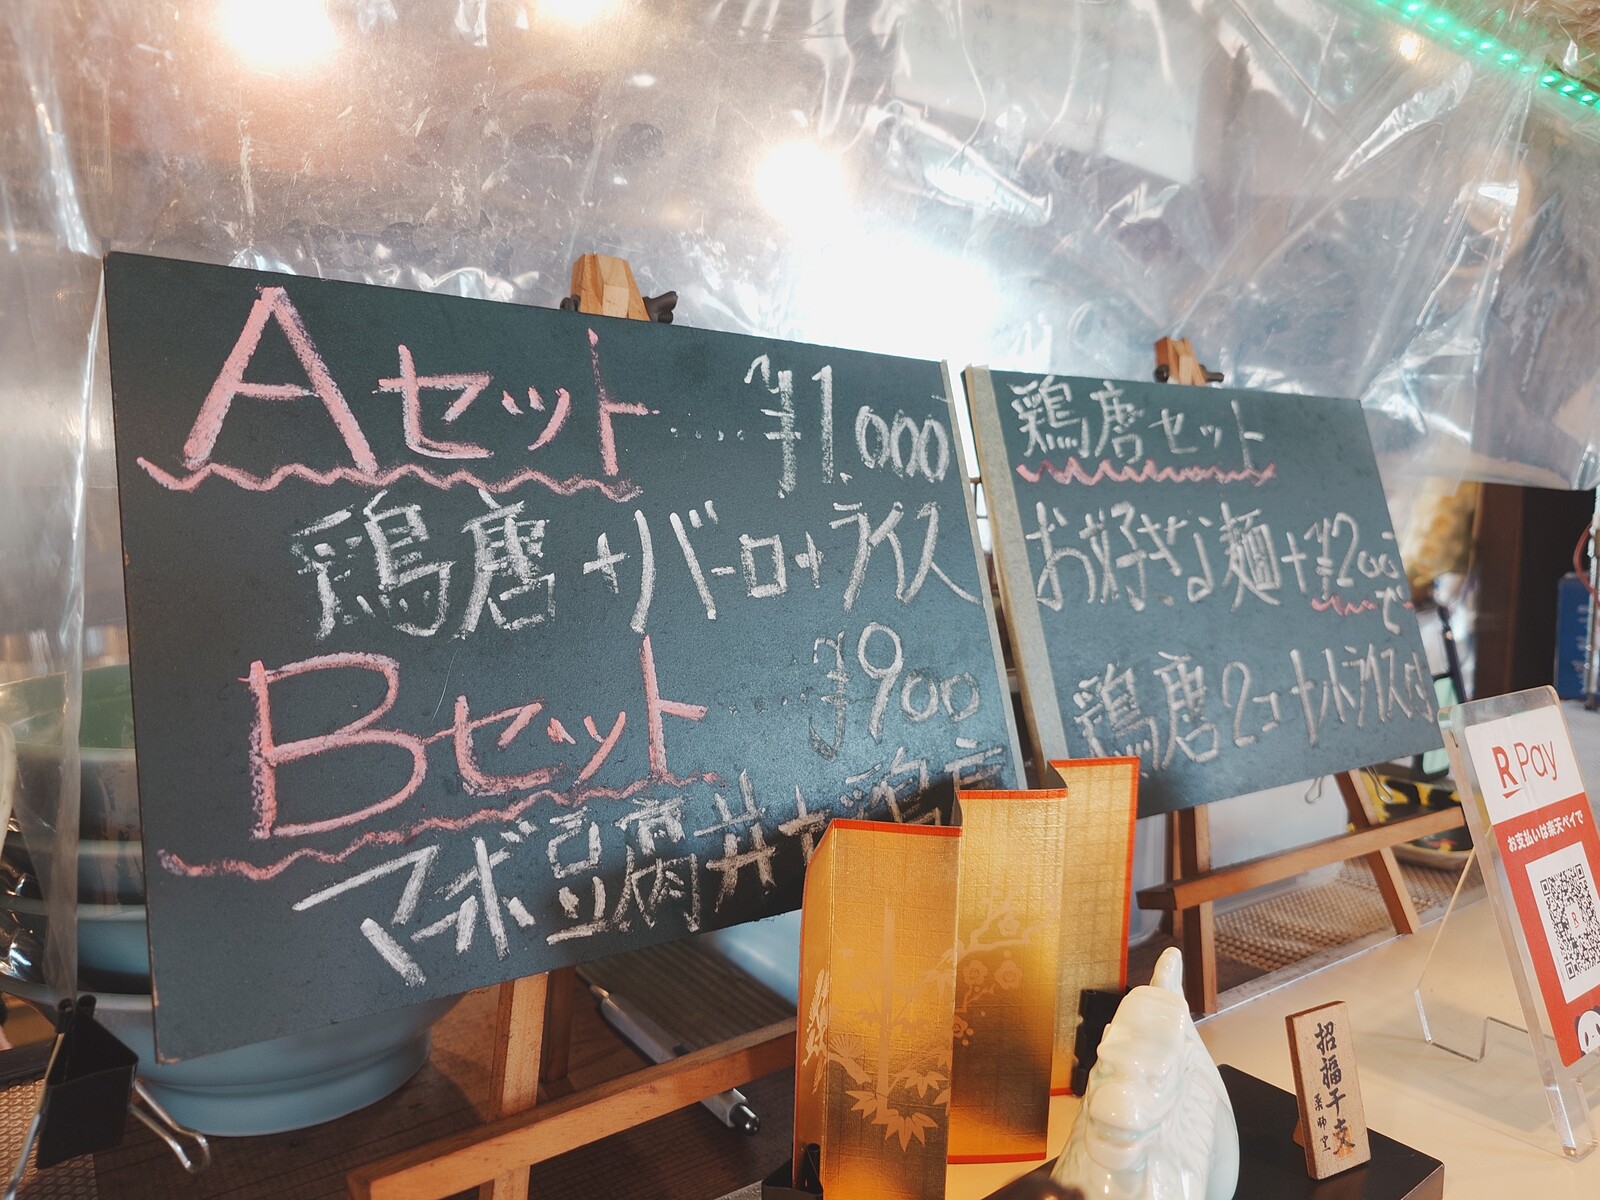 Aセット....¥1.000
鶏唐+バーロ+ライス
Bセット....¥900
マーボ豆腐丼+鶏唐
鶏唐セット
お好きな麺+¥200
で
鶏唐2コ+小ライス付
R Pay
お支払いは楽天ペイで
招福干支
薬師窯